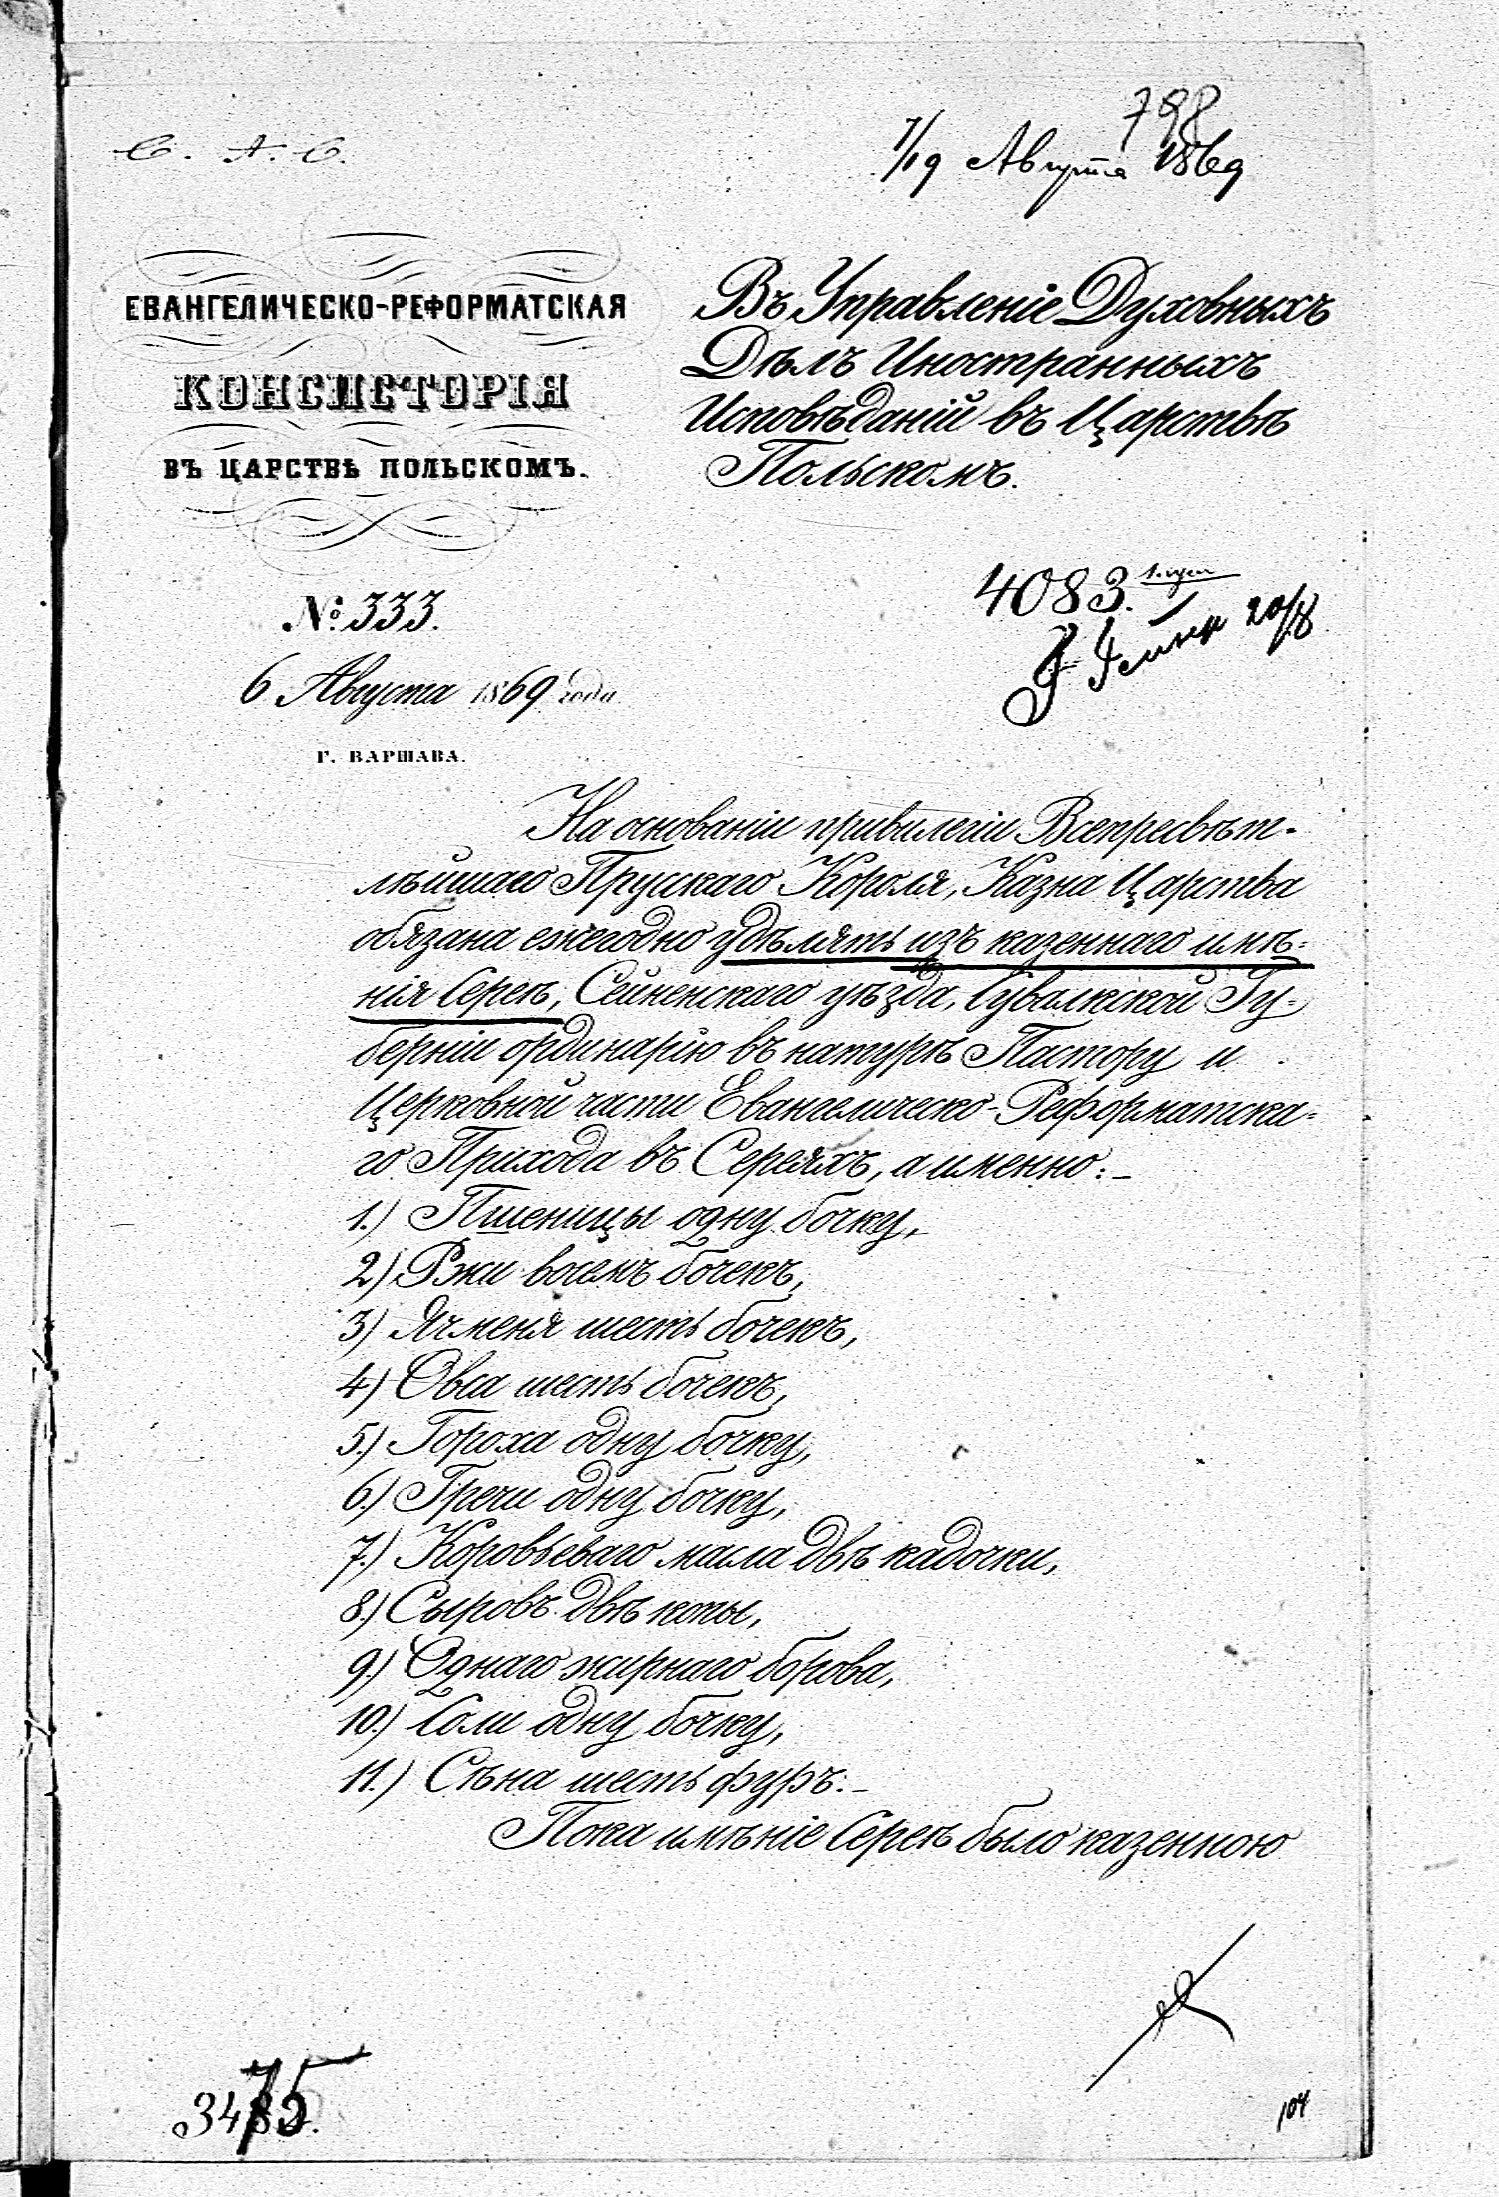 798
7/19 Августа 1869
С. А. С.
ЕВАНГЕЛИЧЕСКО-РЕФОРМАТСКАЯ
КОНСИСТОРІЯ
ВЪ ЦАРСТВѢ ПОЛЬСКОМЪ.
№ 333.
6 Августа 1869 года
Г. ВАРШАВА.
Въ Управленіе Духовныхъ
Дѣлъ Иностранныхъ
Исповѣданій въ Царствѣ
Польскомъ.
4083.
20/8
На основаніи привилегіи Всепресвѣт-
лѣйшаго Прусскаго Короля, Казна Царства
обязана ежегодно удѣлять изъ казеннаго имѣ-
нія Сереѣ, Сейненскаго уѣзда, Сувалкской Гу-
берніи ординарію въ натурѣ Пастору и
Церковной части Евангелическо-Реформатска-
го Прихода въ Сереяхъ, а именно:
1.) Пшеницы одну бочку,
2) Ржи восемъ бочекъ,
3) Ячменя шесть бочекъ,
4) Овса шесть бочекъ,
5.) Гороха одну бочку,
6.) Гречи одну бочку,
7.) Коровьеваго масла двѣ кадочки,
8.) Сыровъ двѣ копы,
9.) Однаго жирнаго борова,
10.) Соли одну бочку,
11.) Сѣна шесть фуръ.
Пока имѣніе Сереѣ было казенною
75
104